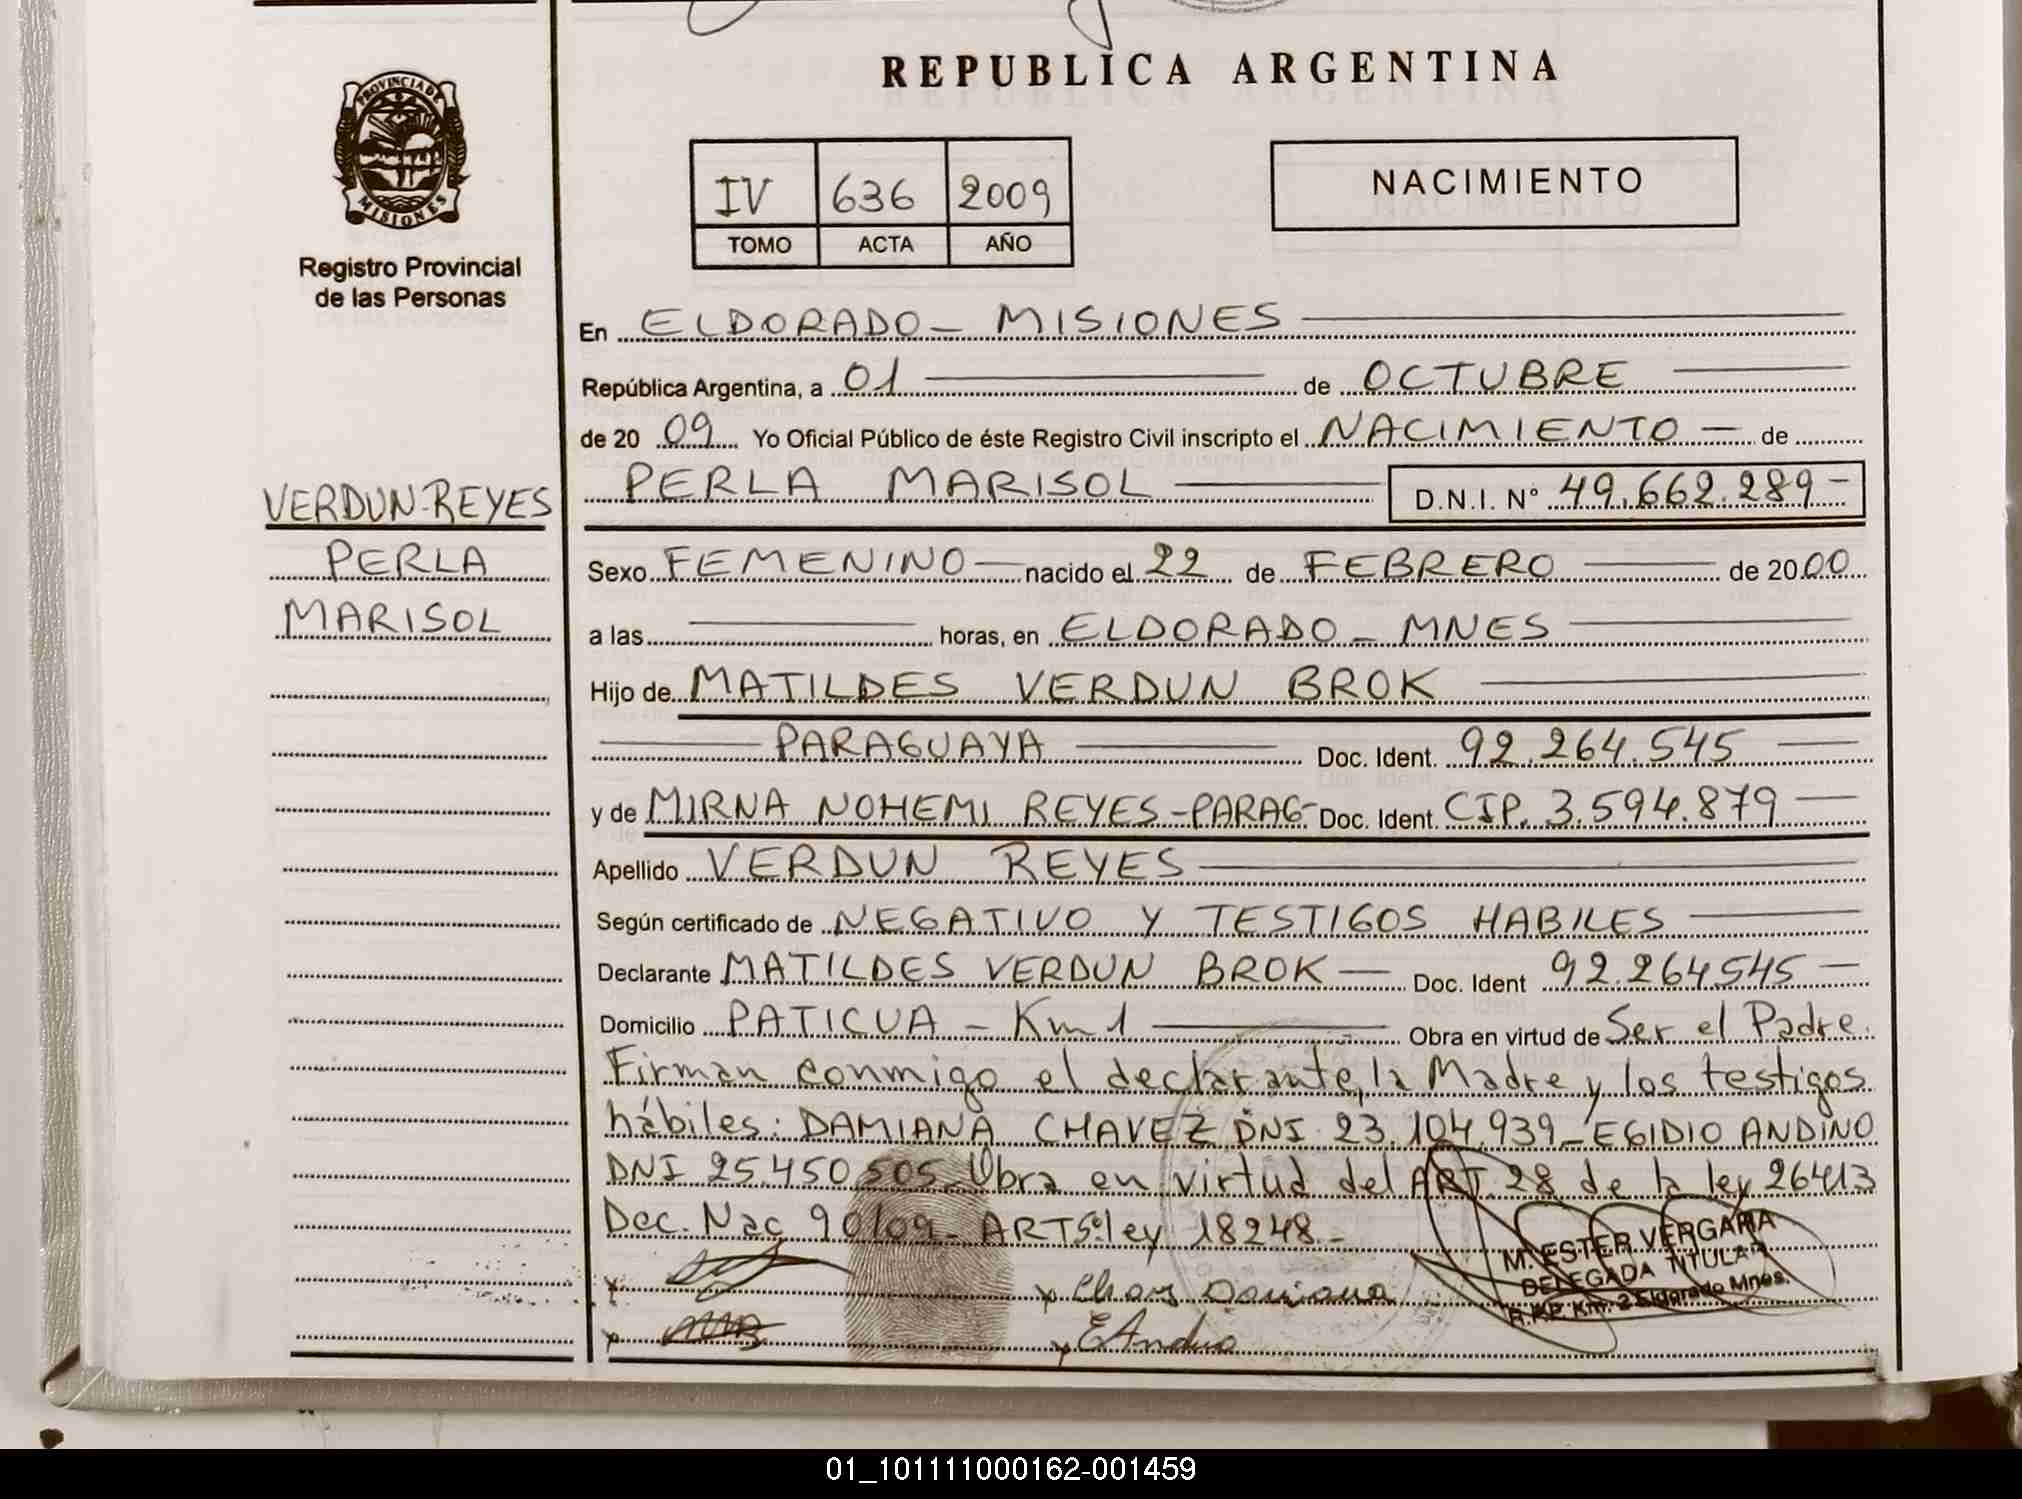 REPUBLICA ARGENTINA
PROVINCIA DE
MISIONES
Registro Provincial
de las Personas
IV 636 2009
TOMO ACTA AÑO
NACIMIENTO
En ELDORADO - MISIONES
República Argentina, a 01 de OCTUBRE
de 2009 Yo Oficial Público de éste Registro Civil inscripto el NACIMIENTO - de
PERLA MARISOL D.N.I. N° 49.662.289 -
VERDUN-REYES
PERLA
MARISOL
Sexo FEMENINO nacido el 22 de FEBRERO de 2000
a las horas, en ELDORADO - MNES
Hijo de MATILDES VERDUN BROK
PARAGUAYA Doc. Ident. 92.264.545
y de MIRNA NOHEMI REYES - PARAG - Doc. Ident. CIP. 3.594.879
Apellido VERDUN REYES
Según certificado de NEGATIVO Y TESTIGOS HABILES
Declarante MATILDES VERDUN BROK - Doc. Ident 92.264545 -
Domicilio PATICUA - Km 1 Obra en virtud de Ser el Padre.
Firman conmigo el declarante, la Madre y los testigos
hábiles: DAMIANA CHAVEZ DNI 23.104.939 - EGIDIO ANDINO
DNI 25.450.505 Obra en virtud del ART. 28 de la ley 26413
Dec. Nac 90/09 - ART 5º ley 18248 -
M. ESTER VERGARA
DELEGADA TITULAR
R.P.P. Km. 2 Eldorado Mnes.
x x Damiana
x x EAndino
01_101111000162-001459